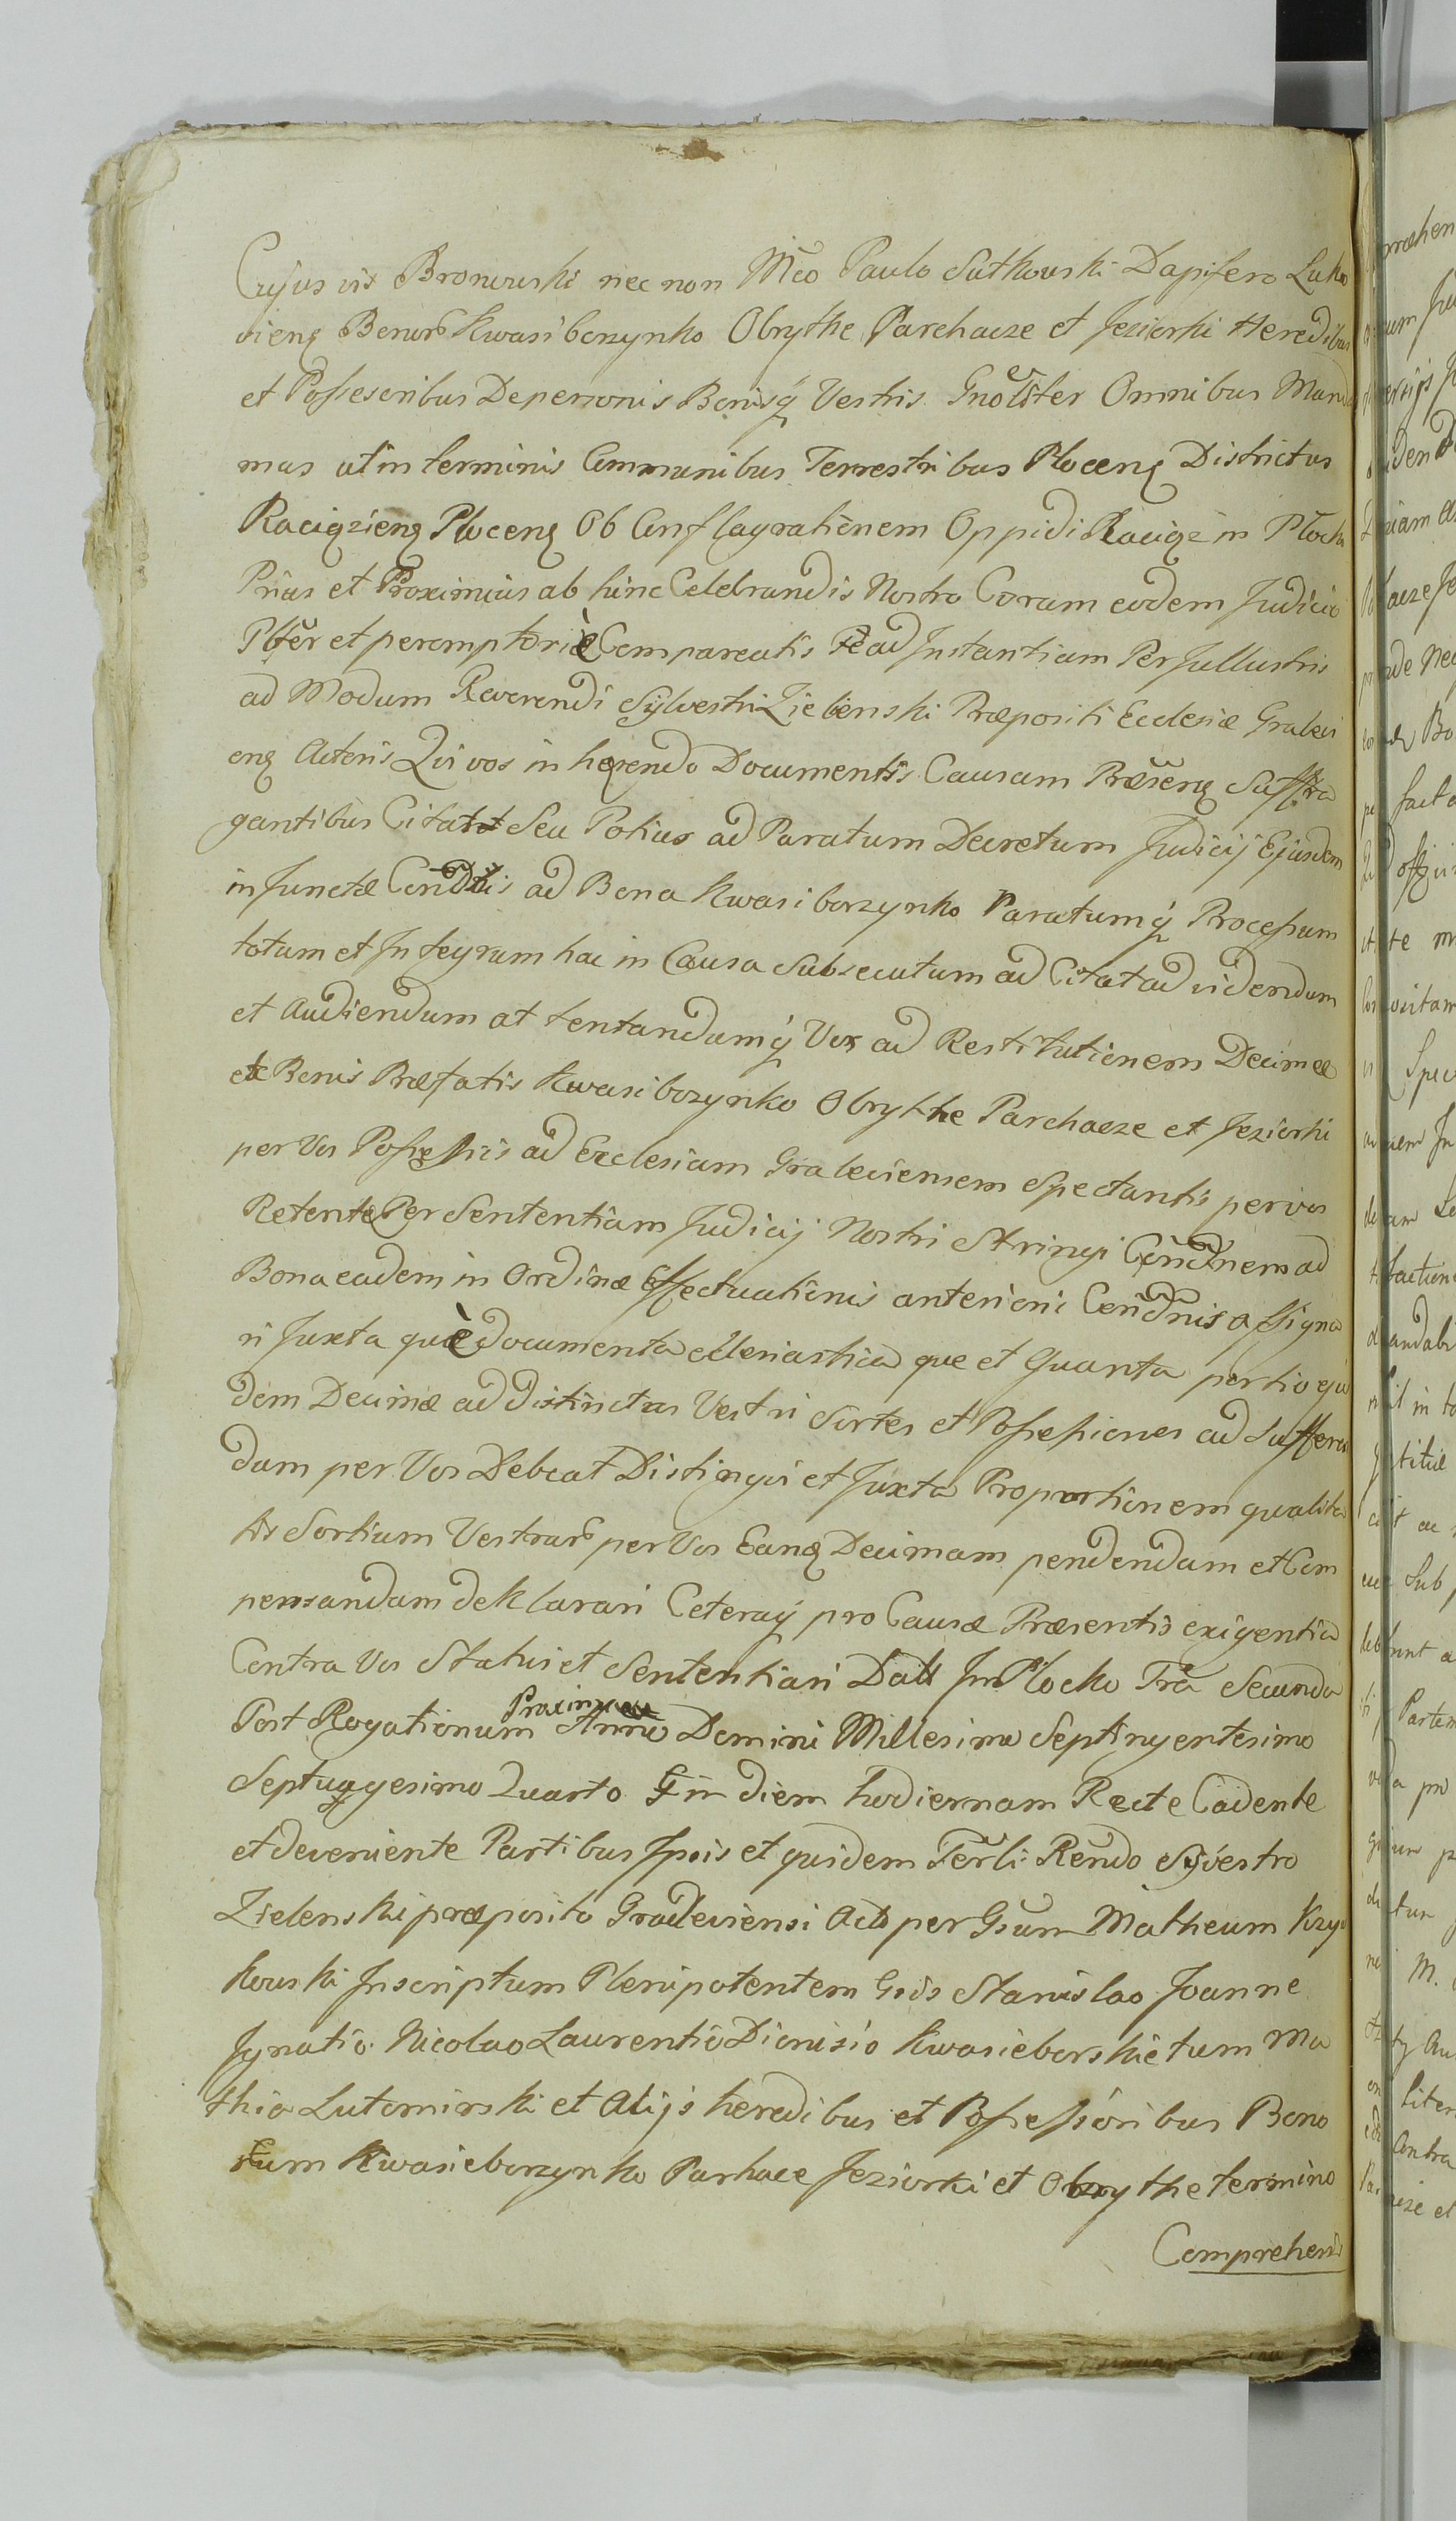 Cujus vis Bronowski nec non Mco Paulo Sutkowski Dapifero Luko
vieng Benorb Kwasiborzynko Obrythe Parchacze et Jeziorki Heredibus
et Possesoribus De personis Bonisq Vestris Gnoliter Omnibus Manda
mus ut in terminis Communibus Terrestribus Ploceng Districtus
Raciązieng Ploceng Ob Conflagrationem Oppidi Raciąz in Płocko
Prius et Proximius ab hinc Celebrandis Nostro Coram eodem Judicio
Plter et peremptoriè Compareatis ad Instantiam Per Jullustris
ad Modum Reverendi Sylvestri Zielienski Præpositi Ecclesiæ Gralevi
eng Actoris Qui vos in herendo Documentis Causam Præseng Suffra
gantibus Citat Seu Potius ad Paratum Decretum Judicij Ejusdem
in Junctæ Condnis ad Bona Kwasiborzynko Paratumq Processum
totum et Integrum hac in Causa Subsecutum ad Citat ad videndum
et Audiendum at tentandumq Vos ad Restitutionem Decimæ
de Bonis Præfatis Kwasiborzynko Obrythe Parchacze et Jeziorki
per Vos Possessis ad Ecclesiam Graleviensem Spectantis per vos
Retentæ Per Sententiam Judicij Nostri Stringi Condnem ad
Bona eadem in Ordine Effectuationis anterioni Condnis assigna
ri Juxta quæ documenta ecclesiastica que et Quanta portio ejus
dem Decimæ ad distinctas Vestri Sortes et Possessiones ad Sufferen
dum per Vos Debeat Distingvi et Juxta Proportionem qualita
tis Sortium Vestrarb per Vos Eang Decimam pendendam et Com
pensandam deklarari Ceteraq pro Causæ Præsentis exigentia
Contra Vos Statui et Sententiari Datt In Płocko Fra Secunda
Post Rogationum Proximo Anno Domini Millesimo Septingentesimo
Septuagesimo Quarto in diem hodiernam Recte Cadente
et deveniente Partibus Ipsis et quidem Perli: Rendo Sylvestro
Zielenski præposito Gradleviensi Acto per Gsum Matheum Krzy
kowski Inscriptum Plenipotentem Gsis Stanislao Joanne
Ignatio Nicolao Laurentio Dionisio Kwasieborskie tum Ma
thia Lutomirski et Alijs heredibus et Possessoribus Bono
rum Kwasieborzynko Parhace Jeziorki et Obrythe termino
Comprehens